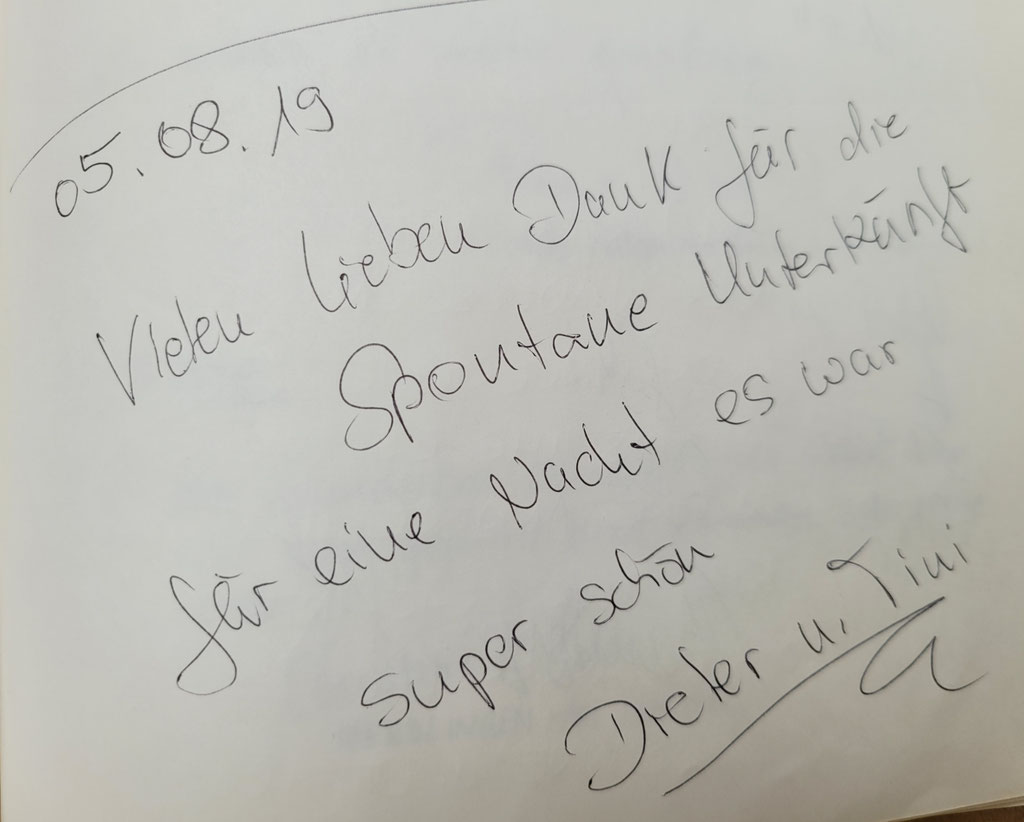 05.08.19
Vielen lieben Dank für die
Spontane Unterkünft
für eine Nacht es war
super schön
Dieter u. Tini